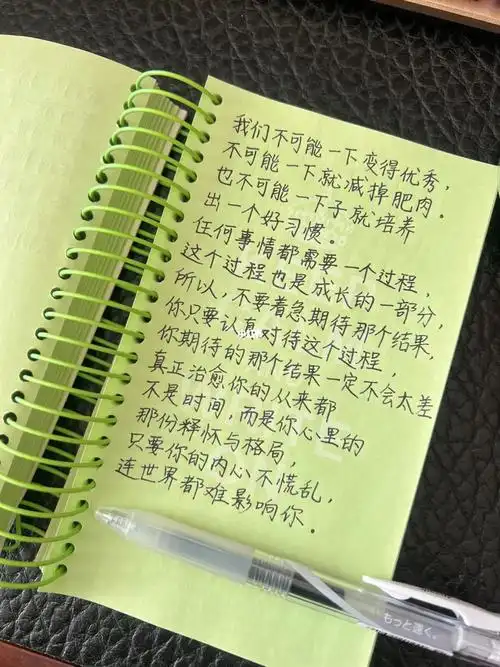 我们不可能一下变得优秀，
不可能一下就减掉肥肉。
也不可能一下子就培养
出一个好习惯。
任何事情都需要一个过程，
这个过程也是成长的一部分，
所以，不要着急期待那个结果，
你只要认真对待这个过程，
你期待的那个结果一定不会太差
真正治愈你的从来都
不是时间，而是你心里的
那份释怀与格局，
只要你的内心不慌乱，
连世界都难影响你。
もっと速く。